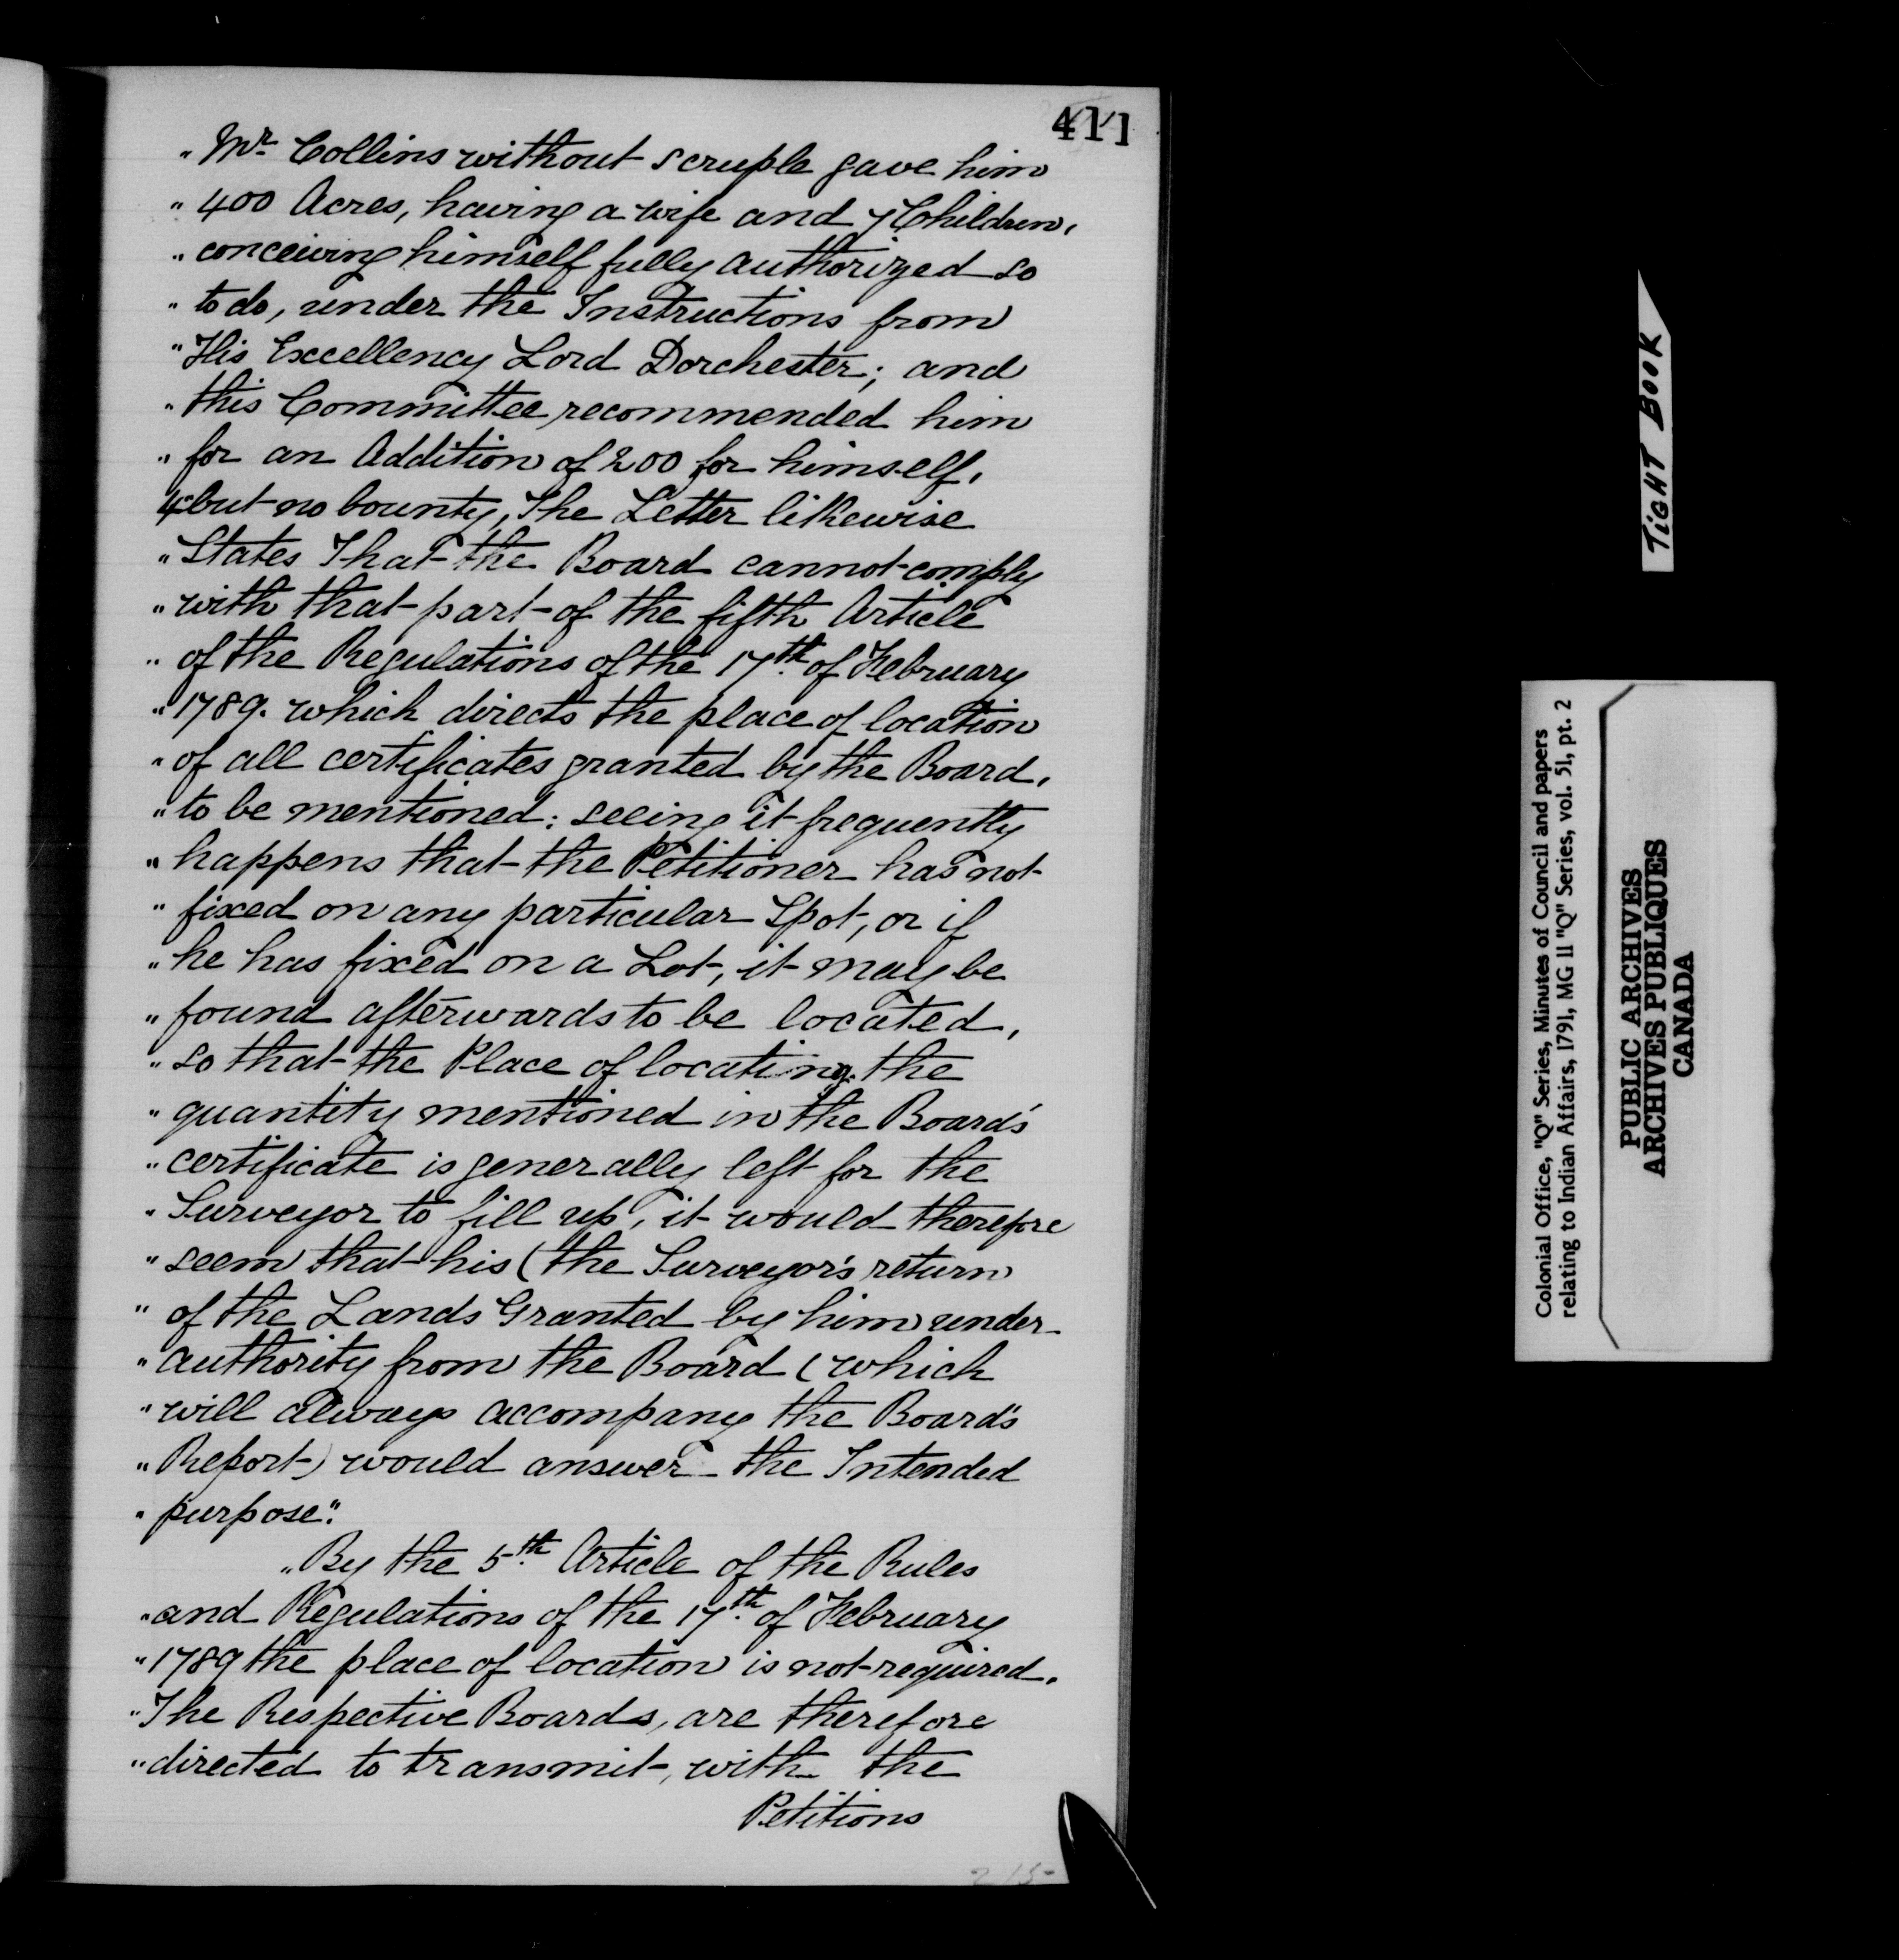 411
"Mr. Collins without scruple gave him
"400 Acres, having a wife and 7 Children,
"conceiving himself fully authorized so
"to do, under the Instructions from
"His Excellency Lord Dorchester; and
"this Committee recommended him
"for an Addition of 200 for himself,
"but no bounty, The Letter likewise
"States That the Board cannot comply
"with that part of the fifth Article
"of the Regulations of the 17th of February
"1789. which directs the place of location
"of all certificates granted by the Board,
"to be mentioned: seeing it frequently
"happens that the Petitioner has not
"fixed on any particular Spot, or if
"he has fixed on a Lot, it may be
"found afterwards to be located,
"so that the Place of locating the
"quantity mentioned in the Board's
"certificate is generally left for the
"Surveyor to fill up, it would therefore
"seem that his (the Surveyor's return
"of the Lands Granted by him under
"authority from the Board (which
"will always accompany the Board's
"Report) would answer the Intended
"purpose."
"By the 5th. Article of the Rules
"and Regulations of the 17th. of February
"1789 the place of location is not required.
"The Respective Boards, are therefore
"directed to transmit, with the
Petitions
215
TiGHT BOOK
Colonial Office, "Q" Series, Minutes of Council and papers
relating to Indian Affairs, 1791, MG 11 "Q" Series, vol. 51, pt. 2
PUBLIC ARCHIVES
ARCHIVES PUBLIQUES
CANADA